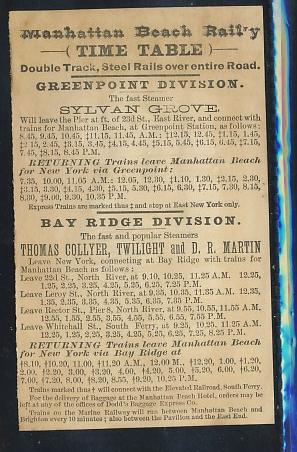 Manhattan Beach Rail'y
—( TIME TABLE )—
Double Track, Steel Rails over entire Road.
GREENPOINT DIVISION.
The fast Steamer
SYLVAN GROVE.
Will leave the Pier at ft. of 23d St., East River, and connect with
trains for Manhattan Beach, at Greenpoint Station, as follows:
8.45, 9.45, 10.45, ‡11.15, 11.45, A.M.; ‡12.15, 12.45, ‡1.15, 1.45,
‡2 15, 2.45, ‡3.15, 3.45, ‡4.15, 4.45, ‡5.15, 5.45, ‡6.15, 6.45, ‡7.15,
7.45, ‡8.15, 8.45 P.M.
RETURNING Trains leave Manhattan Beach
for New York via Greenpoint:
7.35, 10.00, 11.05 A.M.; 12.05, 12.30, ‡1.10, 1.30, ‡2.15, 2.30,
‡3.15, 3.30, ‡4.15, 4.30, ‡5.15, 5.30, ‡6.15, 6.30, ‡7.15, 7.30, 8.15,
8.30, ‡9.00, 9.30, 10.35 P.M.
Express Trains are marked thus ‡ and stop at East New York only.
BAY RIDGE DIVISION.
The fast and popular Steamers
THOMAS COLLYER, TWILIGHT and D. R. MARTIN
Leave New York, connecting at Bay Ridge with trains for
Manhattan Beach as follows:
Leave 22d St., North River, at 9.10, 10.25, 11.25 A.M. 12.25,
1.25, 2.25, 3.25, 4.25, 5.25, 6.25, 7.25 P.M.
Leave Leroy St., North River, at 9.35, 10.35, 11.35 A.M. 12.35,
1.35, 2.35, 3.35, 4.35, 5.35, 6.35, 7.35 P.M.
Leave Rector St., Pier 8, North River, at 9.55, 10.55, 11.55 A.M.
12.55, 1.55, 2.55, 3.55, 4.55, 5.55, 6.55, 7.55 P.M.
Leave Whitehall St., South Ferry, at 9.25, 10.25, 11.25 A.M.
12.25, 1.25, 2.25, 3.25, 4.25, 5.25, 6.25, 7.25, 8.25 P.M.
RETURNING Trains leave Manhattan Beach
for New York via Bay Ridge at
‡8.10, ‡10.20, 11.00, ‡11.20 A.M., 12.00 M., ‡12.20, 1.00, ‡1.20,
2.00, ‡2.20, 3.00, ‡3.20, 4.00, ‡4.20, 5.00, ‡5.20, 6.00, ‡6.20,
7.00, ‡7.20, 8.00, ‡8.20, 8.55, ‡9.20, 10.25 P.M.
Trains marked thus ‡ will connect with the Elevated Railroad, South Ferry.
For the delivery of Baggage at the Manhattan Beach Hotel, orders may be
left at any of the offices of Dodd's Baggage Express Co.
Trains on the Marine Railway will run between Manhattan Beach and
Brighton every 10 minutes; also between the Pavilion and the East End.